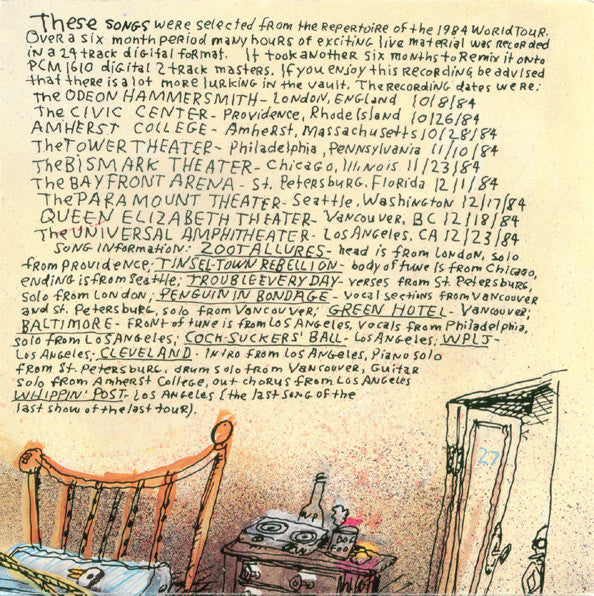 These SONGS were selected from the repertoire of the 1984 World Tour.
Over a six month period many hours of exciting live material was recorded
in a 24 track digital format. It took another six months to remix it onto
PCM 1610 digital 2 track masters. If you enjoy this recording be advised
that there is a lot more lurking in the vault. The recording dates were:
The ODEON HAMMERSMITH - London, England 10/8/84
The CIVIC CENTER - Providence, Rhode Island 10/26/84
AMHERST COLLEGE - Amherst, Massachusetts 10/28/84
The TOWER THEATER - Philadelphia, Pennsylvania 11/10/84
The BISMARK THEATER - Chicago, Illinois 11/23/84
The BAYFRONT ARENA - St. Petersburg, Florida 12/1/84
The PARAMOUNT THEATER - Seattle, Washington 12/17/84
QUEEN ELIZABETH THEATER - Vancouver, BC 12/18/84
The UNIVERSAL AMPHITHEATER - Los Angeles, CA 12/23/84
SONG INFORMATION: ZOOT ALLURES - head is from London, solo
from Providence; TINSEL-TOWN REBELLION - body of tune is from Chicago,
ending is from Seattle; TROUBLE EVERY DAY - verses from St. Petersburg,
solo from London; PENGUIN IN BONDAGE - vocal sections from Vancouver
and St. Petersburg, solo from Vancouver; GREEN HOTEL - Vancouver;
BALTIMORE - Front of tune is from Los Angeles, vocals from Philadelphia,
solo from Los Angeles; COCK-SUCKERS' BALL - Los Angeles; WPLJ -
Los Angeles; CLEVELAND - Intro from Los Angeles, Piano solo
from St. Petersburg, drum solo from Vancouver, Guitar
solo from Amherst College, out chorus from Los Angeles
WHIPPIN' POST - Los Angeles (the last song of the
last show of the last tour).
27
DOG
FOOD